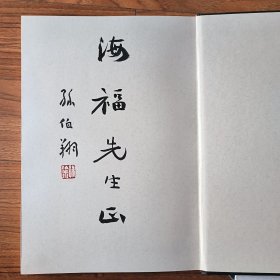 海福先生正
孙伯翔